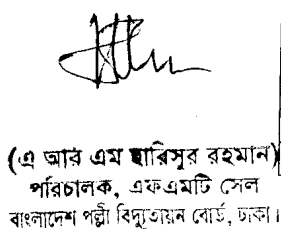 (এ আর এম হারিসুর রহমান)
পরিচালক, এফএমটি সেল
বাংলাদেশ পল্লী বিদ্যুতায়ন বোর্ড, ঢাকা।